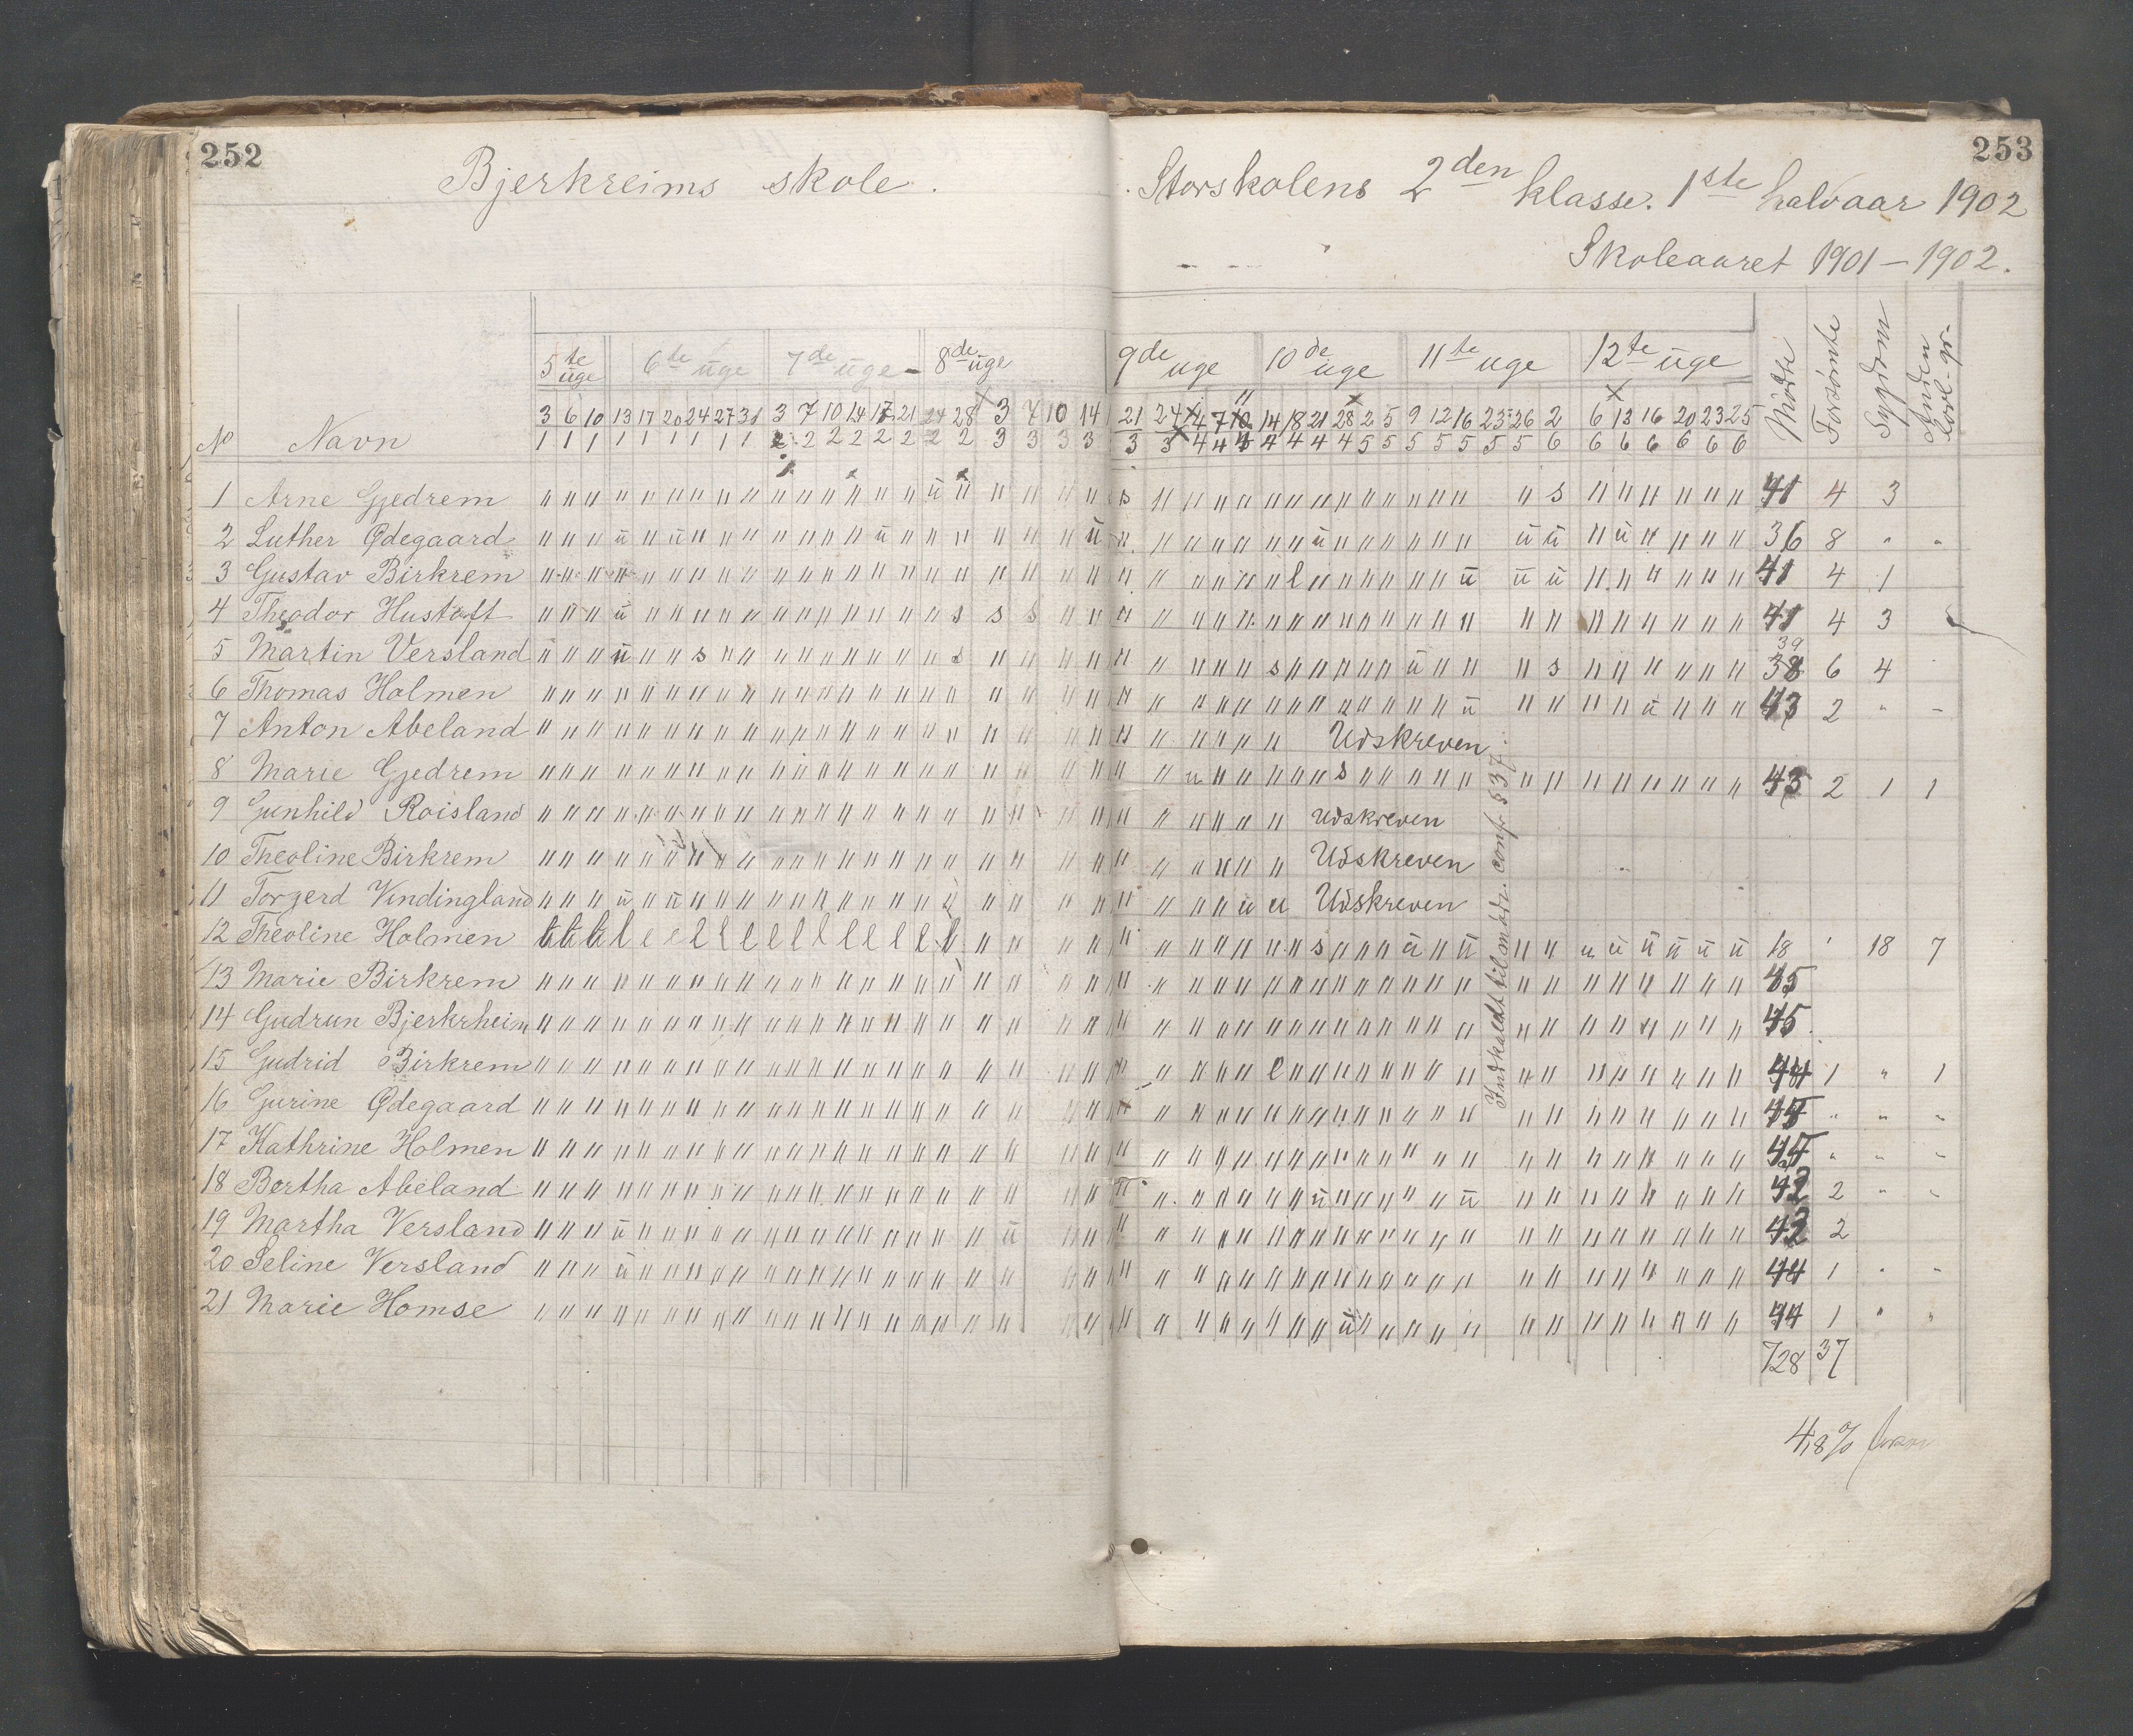 252
253
Bjerkreims skole.
Storskolens 2den klasse. 1ste halvaar 1902
Skoleaaret 1901–1902.
5te uge 6te uge 7de uge 8de uge 9de uge 10de uge 11te uge 12te uge Mødte Forsømte Sygdom Anden lovl. gr.
3 6 10 13 17 20 24 27 31 3 7 10 14 17 21 24 28 3 7 10 14 21 24 4 7 10 14 18 21 28 2 5 9 12 16 23 26 2 6 13 16 20 23 25
No Navn 1 1 1 1 1 1 1 1 1 2 2 2 2 2 2 2 2 3 3 3 3 3 3 4 4 4 4 4 4 4 5 5 5 5 5 5 5 6 6 6 6 6 6 6
1 Arne Gjedrem 41 4 3
2 Luther Ødegaard 36 8 " "
3 Gustav Birkrem 41 4 1
4 Theodor Hustoft 41 4 3
5 Martin Versland 39 38 6 4
6 Thomas Holmen 43 2 " -
7 Anton Abeland Udskreven
8 Marie Gjedrem 43 2 1 1
9 Gunhild Roisland Udskreven
10 Theoline Birkrem Udskreven
11 Torgerd Vindingland Udskreven
12 Theoline Holmen 18 ' 18 7
13 Marie Birkrem 45
14 Gudrun Bjerkrheim 45
15 Gudrid Birkrem 44 1 " 1
16 Gurine Ødegaard 45 " " "
17 Kathrine Holmen 45 " " "
18 Bertha Abeland 42 2 " "
19 Martha Versland 42 2
20 Seline Versland 44 1 " "
21 Marie Homse 44 1 " "
Indkaldt til møde. conf. § 37.
728 37
4,8%